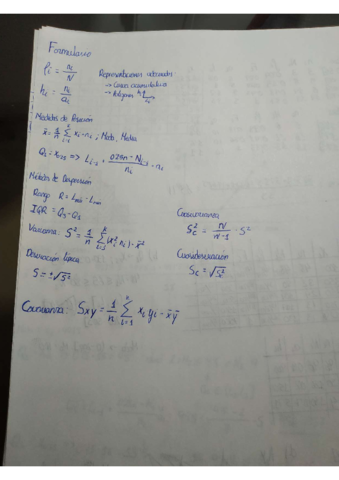 Formulario
fi = ni/N
Representaciones adecuadas
hi = ni/ai
→ Curva acumulativa
→ Polígono
Medidas de Posición
x̄ = 1/n Σ xi·ni, Moda, Media
Q1 = x0,25 => Li-1 + (0,25n - Ni-1)/ni · ai
Métodos de Dispersión
Rango R = Lmáx - Lmin
IQR = Q3 - Q1
Varianza S² = 1/n Σ (xi² ni) - x̄²
Cuasivarianza
Sc² = N/(N-1) · S²
Desviación típica
S = +√S²
Cuasidesviación
Sc = √Sc²
Covarianza Sxy = 1/n Σ xi yi - x̄ȳ